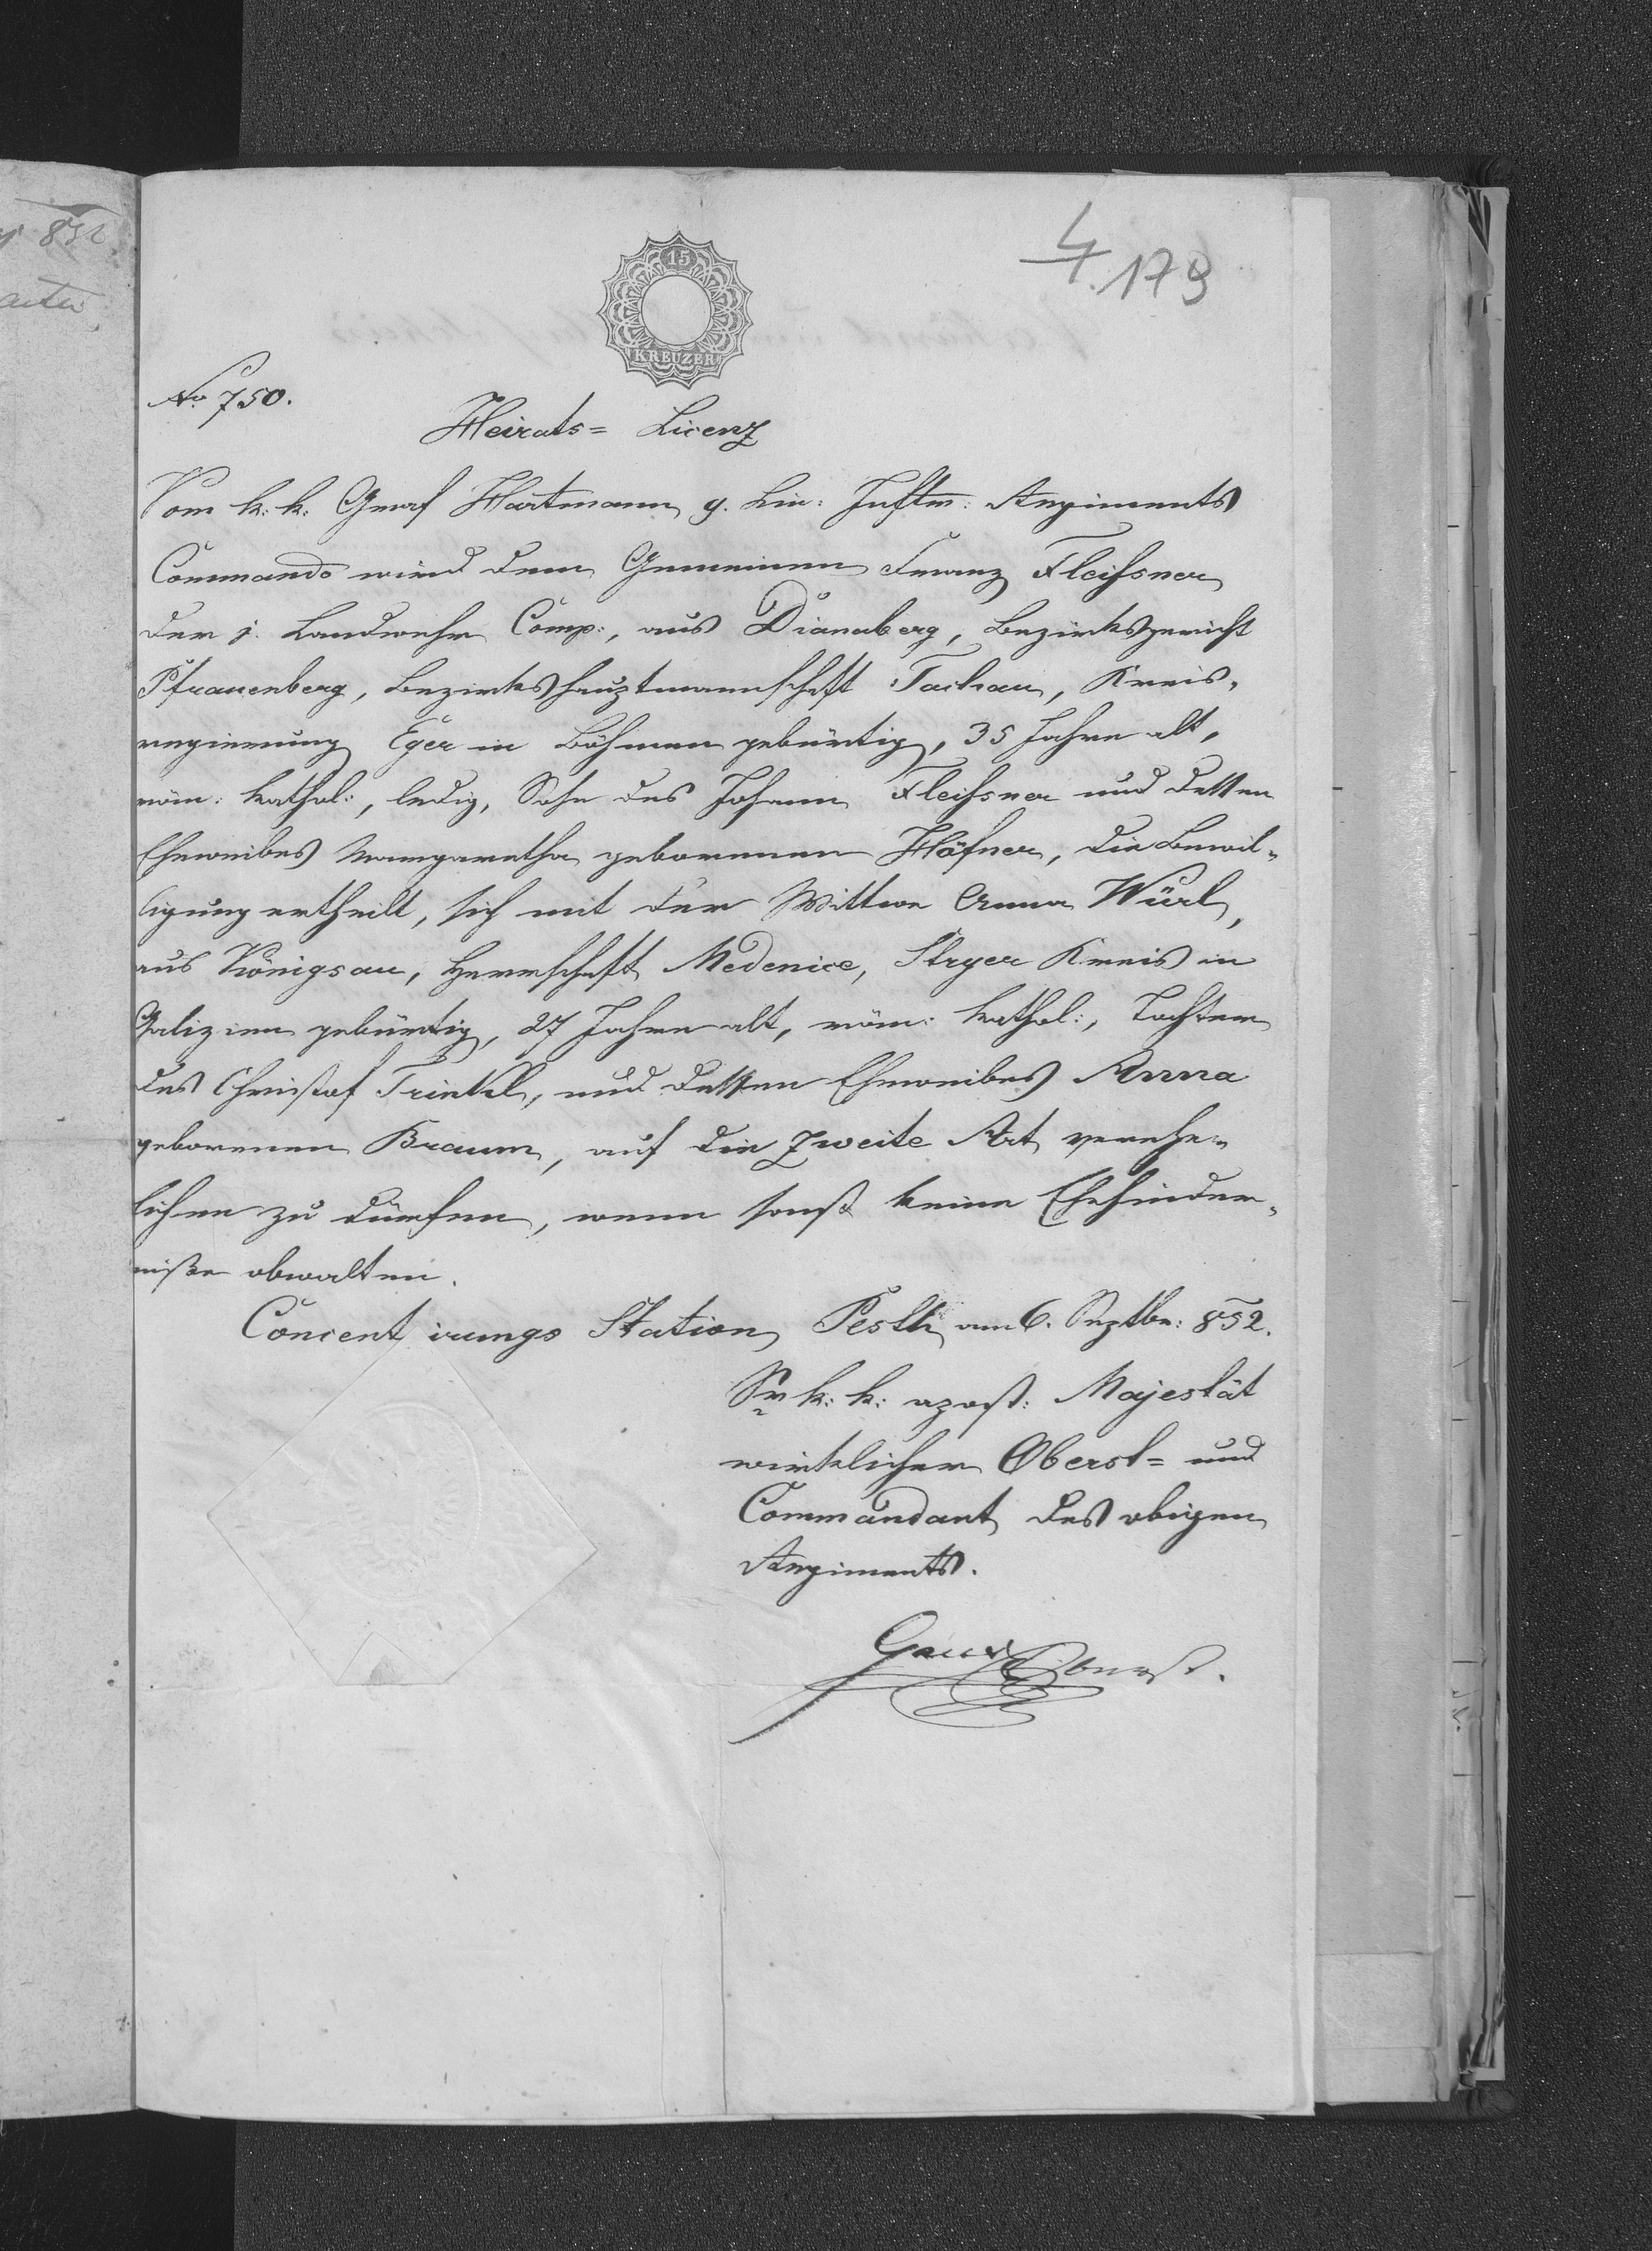 832
4.179
15
KREUZER
No 750.
Heirats= Licenz
Vom k: k: Graf Hartmann 9. Lin: Inftr: Regiments
Commando wird dem Gemeinen Franz Fleißner
der j. Landwehr Comp:, aus Dianaberg, Bezirksgericht
Pfrauenberg, Bezirkshauptmannschaft Tachau, Kreis-
regierung Eger in Böhmen gebürtig, 35 Jahre alt,
röm: kathol:, ledig, Sohn des Johann Fleißner und dessen
Eheweibes Margaretha geborenen Häfner, die Bewil-
ligung ertheilt, sich mit der Wittwe Anna Würl,
aus Königsau, Herrschaft Medenice, Stryer Kreis in
Galizien gebürtig, 27 Jahre alt, röm: kathol:, Tochter
des Christof Trinkl, und dessen Eheweibes Anna
geborenen Braum, auf die Zweite Art verehe-
lichen zu dürfen, wenn sonst keine Ehehinder-
niße obwalten.
Concentrirungs Station Pesth am 6. Septbr: 852.
Sr k: k: apost: Majestät
wirklicher Oberst= und
Commandant des obigen
Regiments.
Oberst.